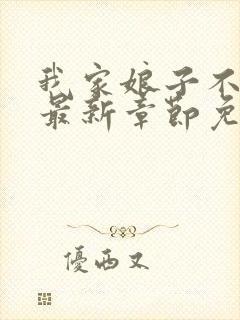 我家娘子不
最新章节免
優西又